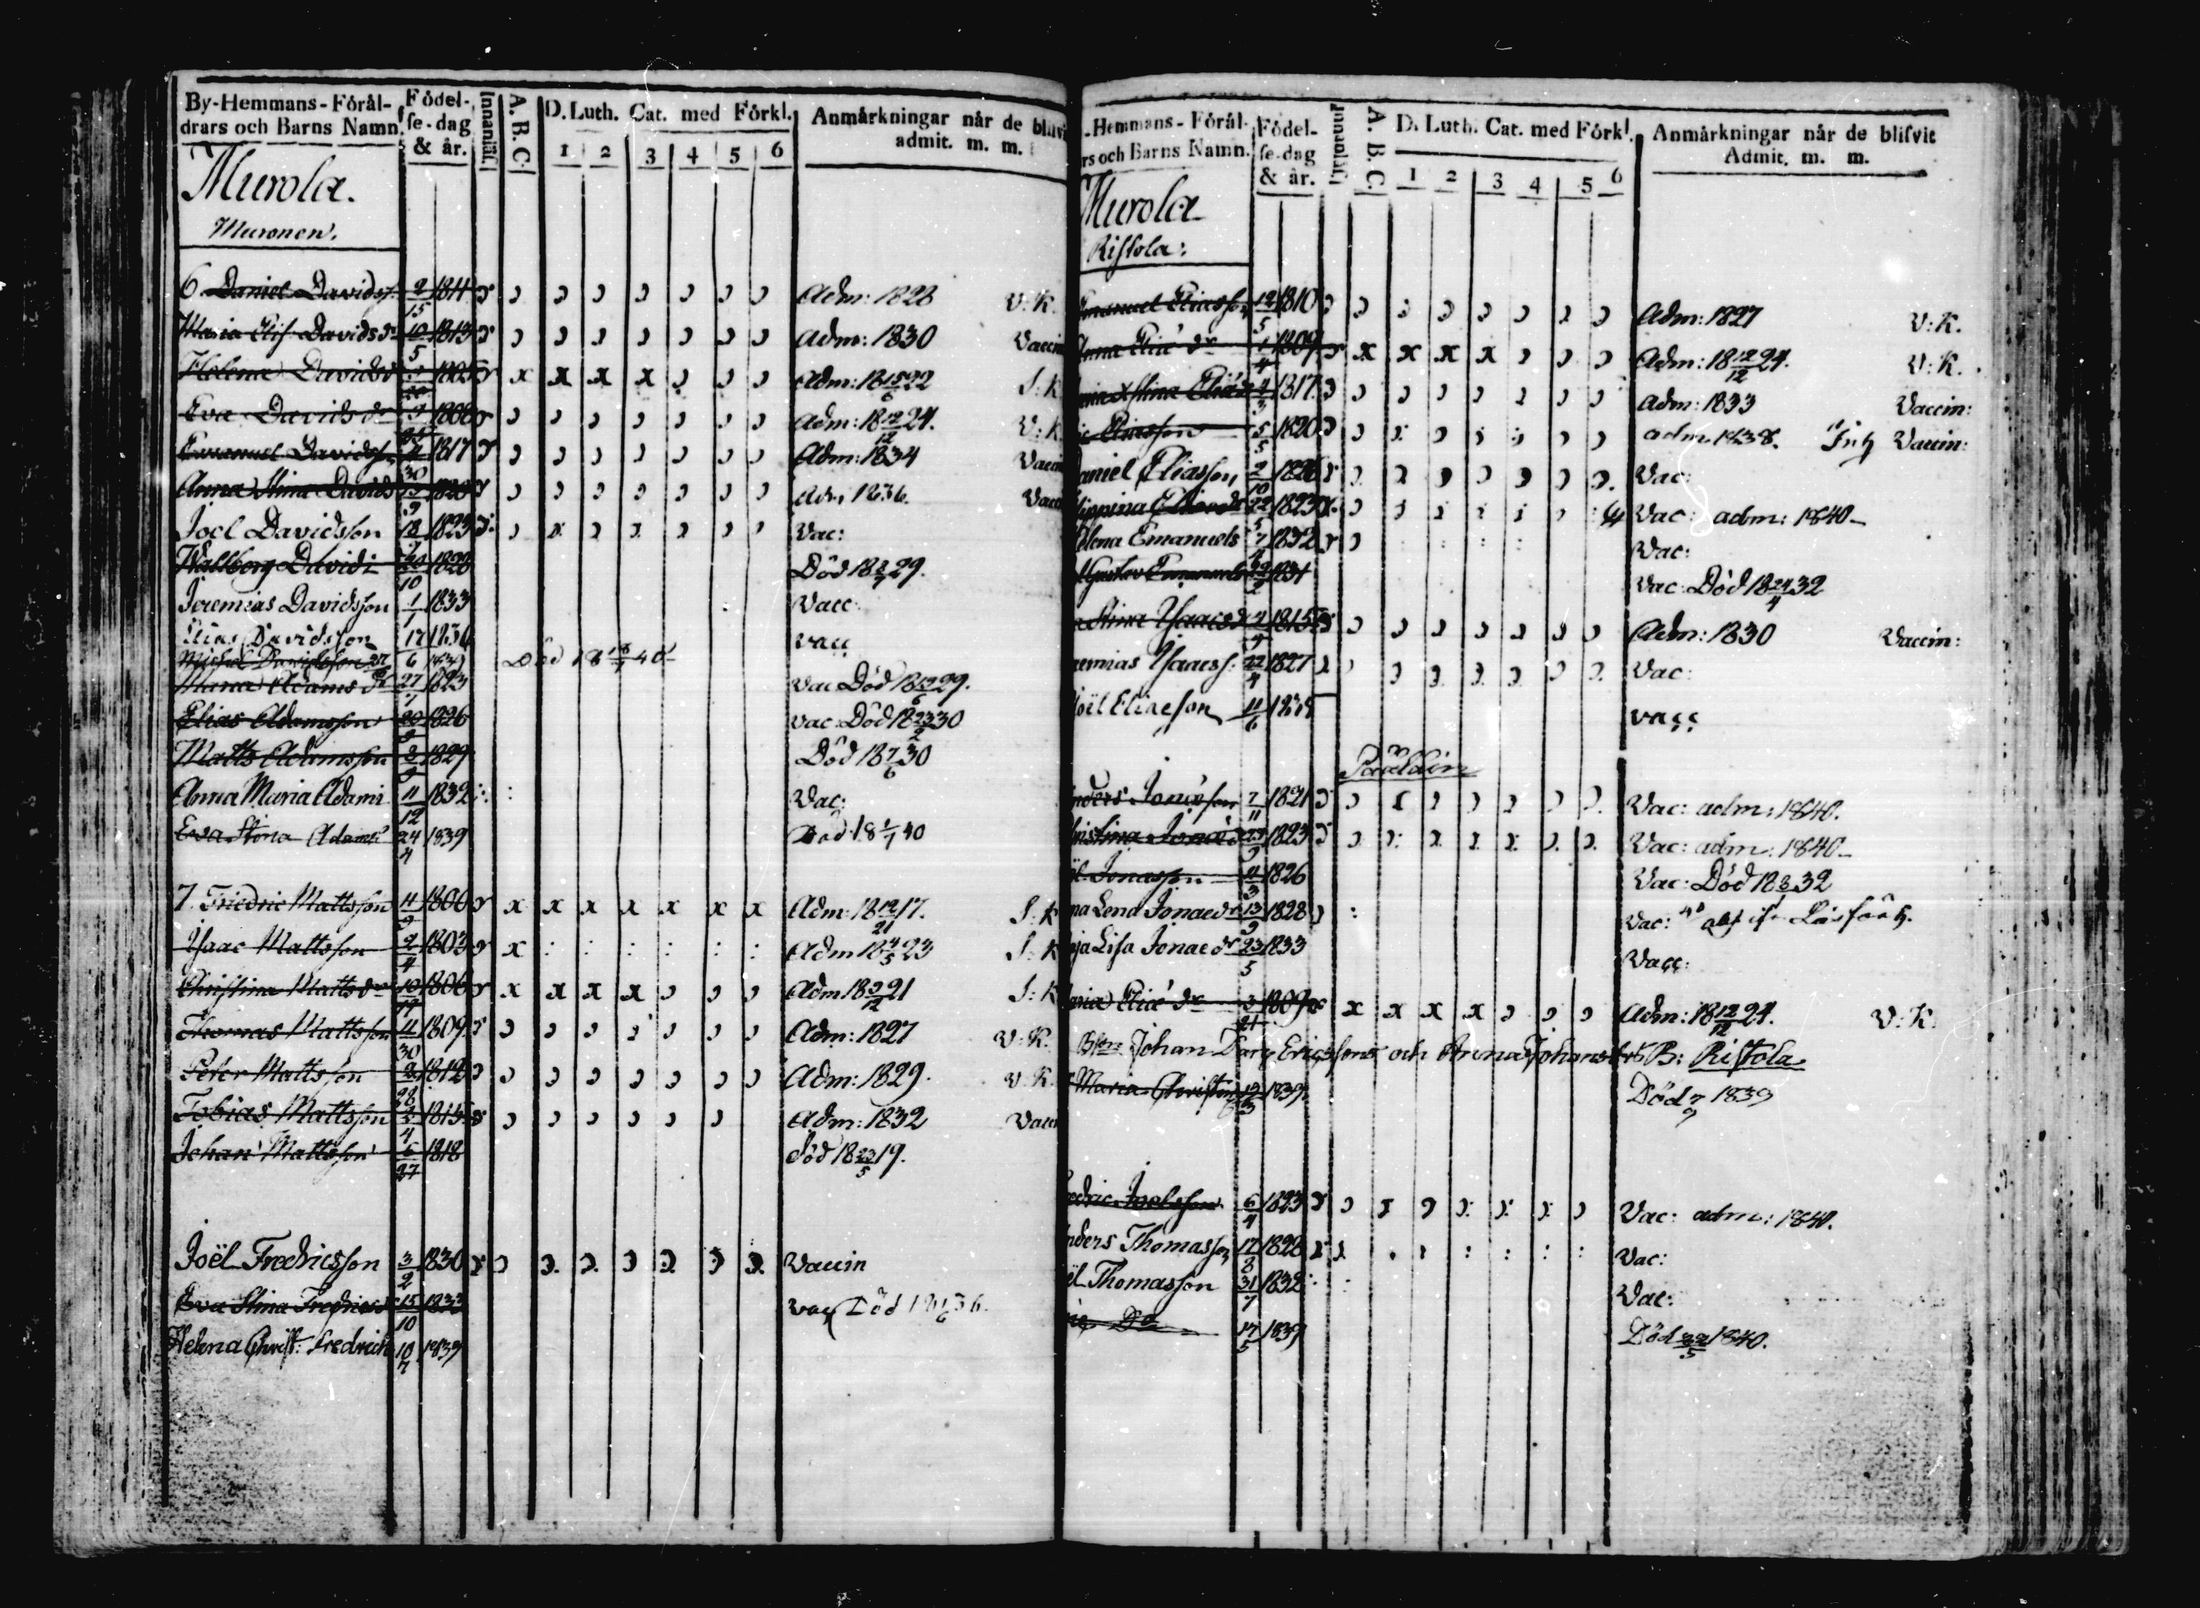 By-Hemmans-Förål-
drars och Barns Namn.
Födel-
se-dag
& år.
Innanläs.
A. B. C.
D. Luth. Cat. med Förkl.
1 2 3 4 5 6
Anmärkningar når de blifvit
admit. m. m.
Murola.
Muronen.
6 Daniel Davidss. 2/15 1811 Adm: 1828 V: K.
Maria Elis. Davidsdr 10/5 1813 Adm: 1830 Vaccin
Helena Davidsdr 1805 x x x x Adm: 18 15/6 22 S: K
Eva Davidsdr 1808 Adm: 18 12/12 24. V: K
Emanuel Davidsson 1817 Adm: 1834 Vaccin
Anna Stina Davids 1820 Adm 1836. Vaccin
Joel Davidsson 1823 Vac:
Wallborg Davidi 1828 Död 18 29.
Jeremias Davidsson 1/1 1833 Vacc:
Elias Davidsson 17 1836 vacc
Michel Davidsson 6 Död 18 40
Maria Adams dr 27 1823 Vac Död 18 29.
Elias Adamsson 20 1826 Vac: Död 18 23/2 30
Matts Adamsson 3/9 1829 Död 18 7/6 30
Anna Maria Adami 11/12 1832 Vac:
Eva Stina Adami 24/4 1839 Död 18 1/1 40
7. Friedric Mattsson 11/9 1800 x x x x x x x Adm: 18 12/21 17. S: K
Isaac Mattsson 2/4 1803 x Adm 18 4/5 23 S: K
Christina Mattsdr 10 1806 x x x x Adm 18 3/12 21 S: K
Thomas Mattsson 11/30 1809 Adm: 1827 V: K.
Peter Mattsson 2/28 1812 Adm: 1829. V: K.
Tobias Mattsson 2/4 1815 Adm: 1832 Vaccin
Johan Mattsson 6/27 1818 Död 18 23/5 19.
Joël Fredricsson 3/2 1830 Vaccin
Eva Stina Fredricsdr 15/10 1833 vacc Död 18 36.
Helena Christ: Fredrici 10/7 1839
-Hemmans-Förål-
rs och Barns Namn.
Födel-
se-dag
& år.
Innanläs.
A. B. C.
D. Luth. Cat. med Förkl.
1 2 3 4 5 6
Anmärkningar når de blifvit
Admit. m. m.
Murola
Ristola:
Emanuel Eliasson 12/5 1810 Adm: 1827 V: K.
Anna Eliæ dr 1/4 1809 x x x x Adm: 18 12/12 24. V: K.
Stina Eliædr 4/3 1817 Adm: 1833 Vaccin:
Eliasson 5/5 1820 adm 1838. Vaccin:
Daniel Eliasson 2/10 1826 Vac:
Eliaedr 22/5 1823 Vac: adm: 1840
Helena Emanuels 7/4 1832 Vac:
Gustav Emanuels 1831 Vac: Död 18 24/4 32
Stina Isaacsdr 1815 Adm: 1830 Vaccin:
Jeremias Isaacss. 22/4 1827 Vac:
Joël Eliaeson 11/6 vacc
Anders Jonæson 7/11 1821 Vac: adm: 1840.
Christina Jonædr 1823 Vac: adm: 1840
Jonasson 11/3 1826 Vac: Död 18 32
Lena Jonaedr 13/9 1828 Vac:
Caja Lisa Jonaedr 23/5 1833 Vacc:
Maria Eliædr 3/21 1809 x x x x Adm: 18 12/12 24. V: K.
Johan Ericssons och Anna Johans B: Ristola
Maria Christina 1839 Död 7/9 1839
Fredric Joelsson 6/4 1823 Vac: adm: 1840.
Anders Thomasson 17/8 1828 Vac:
Joël Thomasson 31/7 1832 Vac:
Do 17/5 1839 Död 22/5 1840.